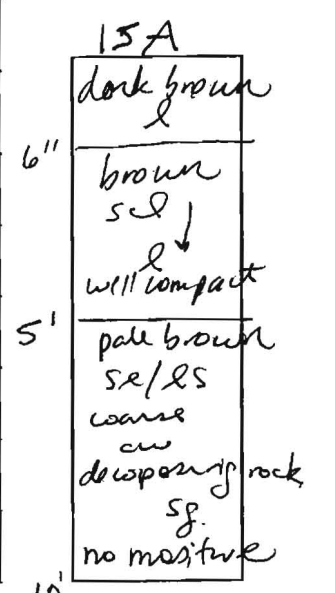 15A
dark brown
l
6"
brown
scl ↓
l
well compact
5'
pale brown
sl/ls
coarse
decoposing rock,
sg.
no mositure
10'